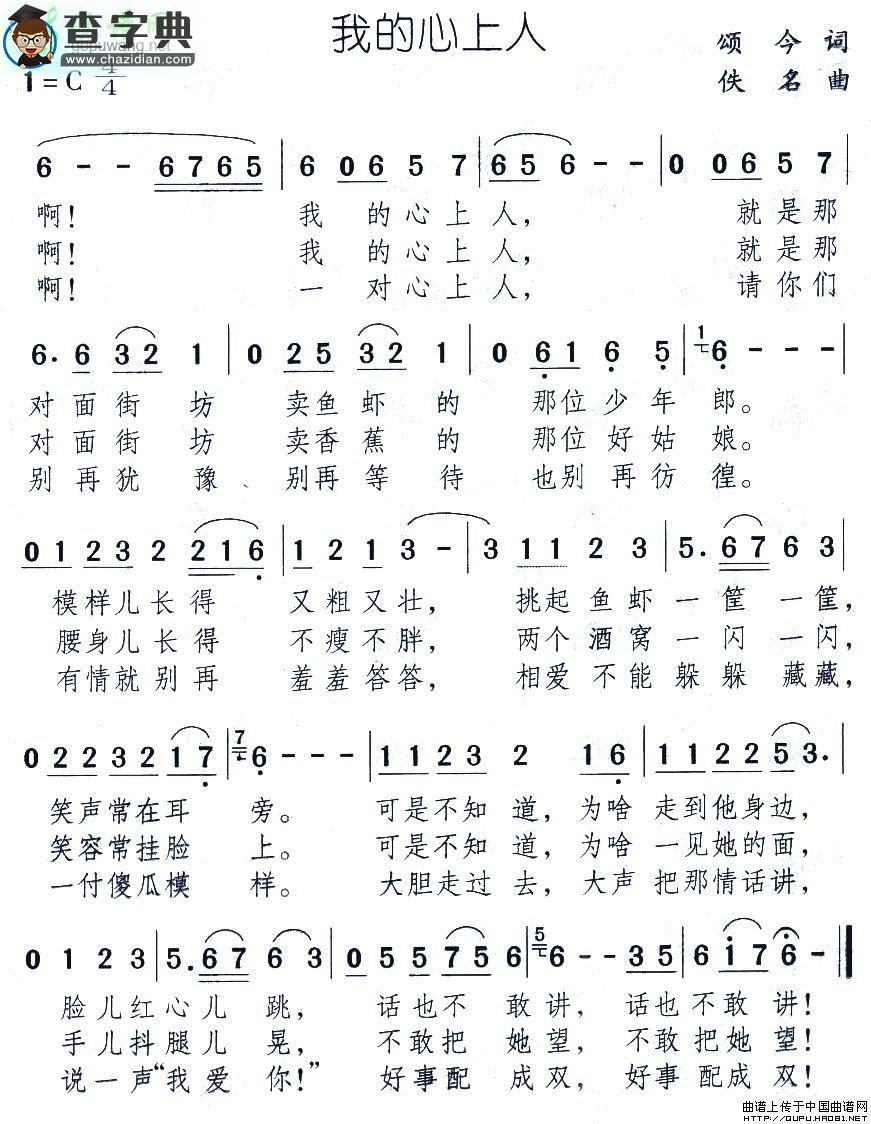 查字典
www.chazidian.com
我的心上人
颂今词
1=C 4/4
佚名曲
6 - - 6765 | 6 065 7 | 656 - - | 0 065 7 |
啊! 我的心上人, 就是那
啊! 我的心上人, 就是那
啊! 一对心上人, 请你们
6. 6 32 1 | 0 25 32 1 | 0 61 6 5 | 1 6 - - - |
对面街坊 卖鱼虾的 那位少年郎。
对面街坊 卖香蕉的 那位好姑娘。
别再犹豫、别再等待 也别再彷徨。
01 23 2 216 | 1 2 1 3 - | 3 11 2 3 | 5. 67 63 |
模样儿长得 又粗又壮, 挑起鱼虾一筐一筐,
腰身儿长得 不瘦不胖, 两个酒窝一闪一闪,
有情就别再 羞羞答答, 相爱不能躲躲藏藏,
02 23 2 17 | 7 6 - - - | 11 23 2 16 | 11 22 53. |
笑声常在耳旁。 可是不知道, 为啥走到他身边,
笑容常挂脸上。 可是不知道, 为啥一见她的面,
一付傻瓜模样。 大胆走过去, 大声把那情话讲,
0 1 2 3 | 5. 67 6 3 | 05 5 75 6 | 5 6 - - 35 | 6 176 - ‖
脸儿红心儿跳, 话也不敢讲, 话也不敢讲!
手儿抖腿儿晃, 不敢把她望, 不敢把她望!
说一声“我爱你!” 好事配成双, 好事配成双!
曲谱上传于中国曲谱网
HTTP://QUPU.HAO81.NET